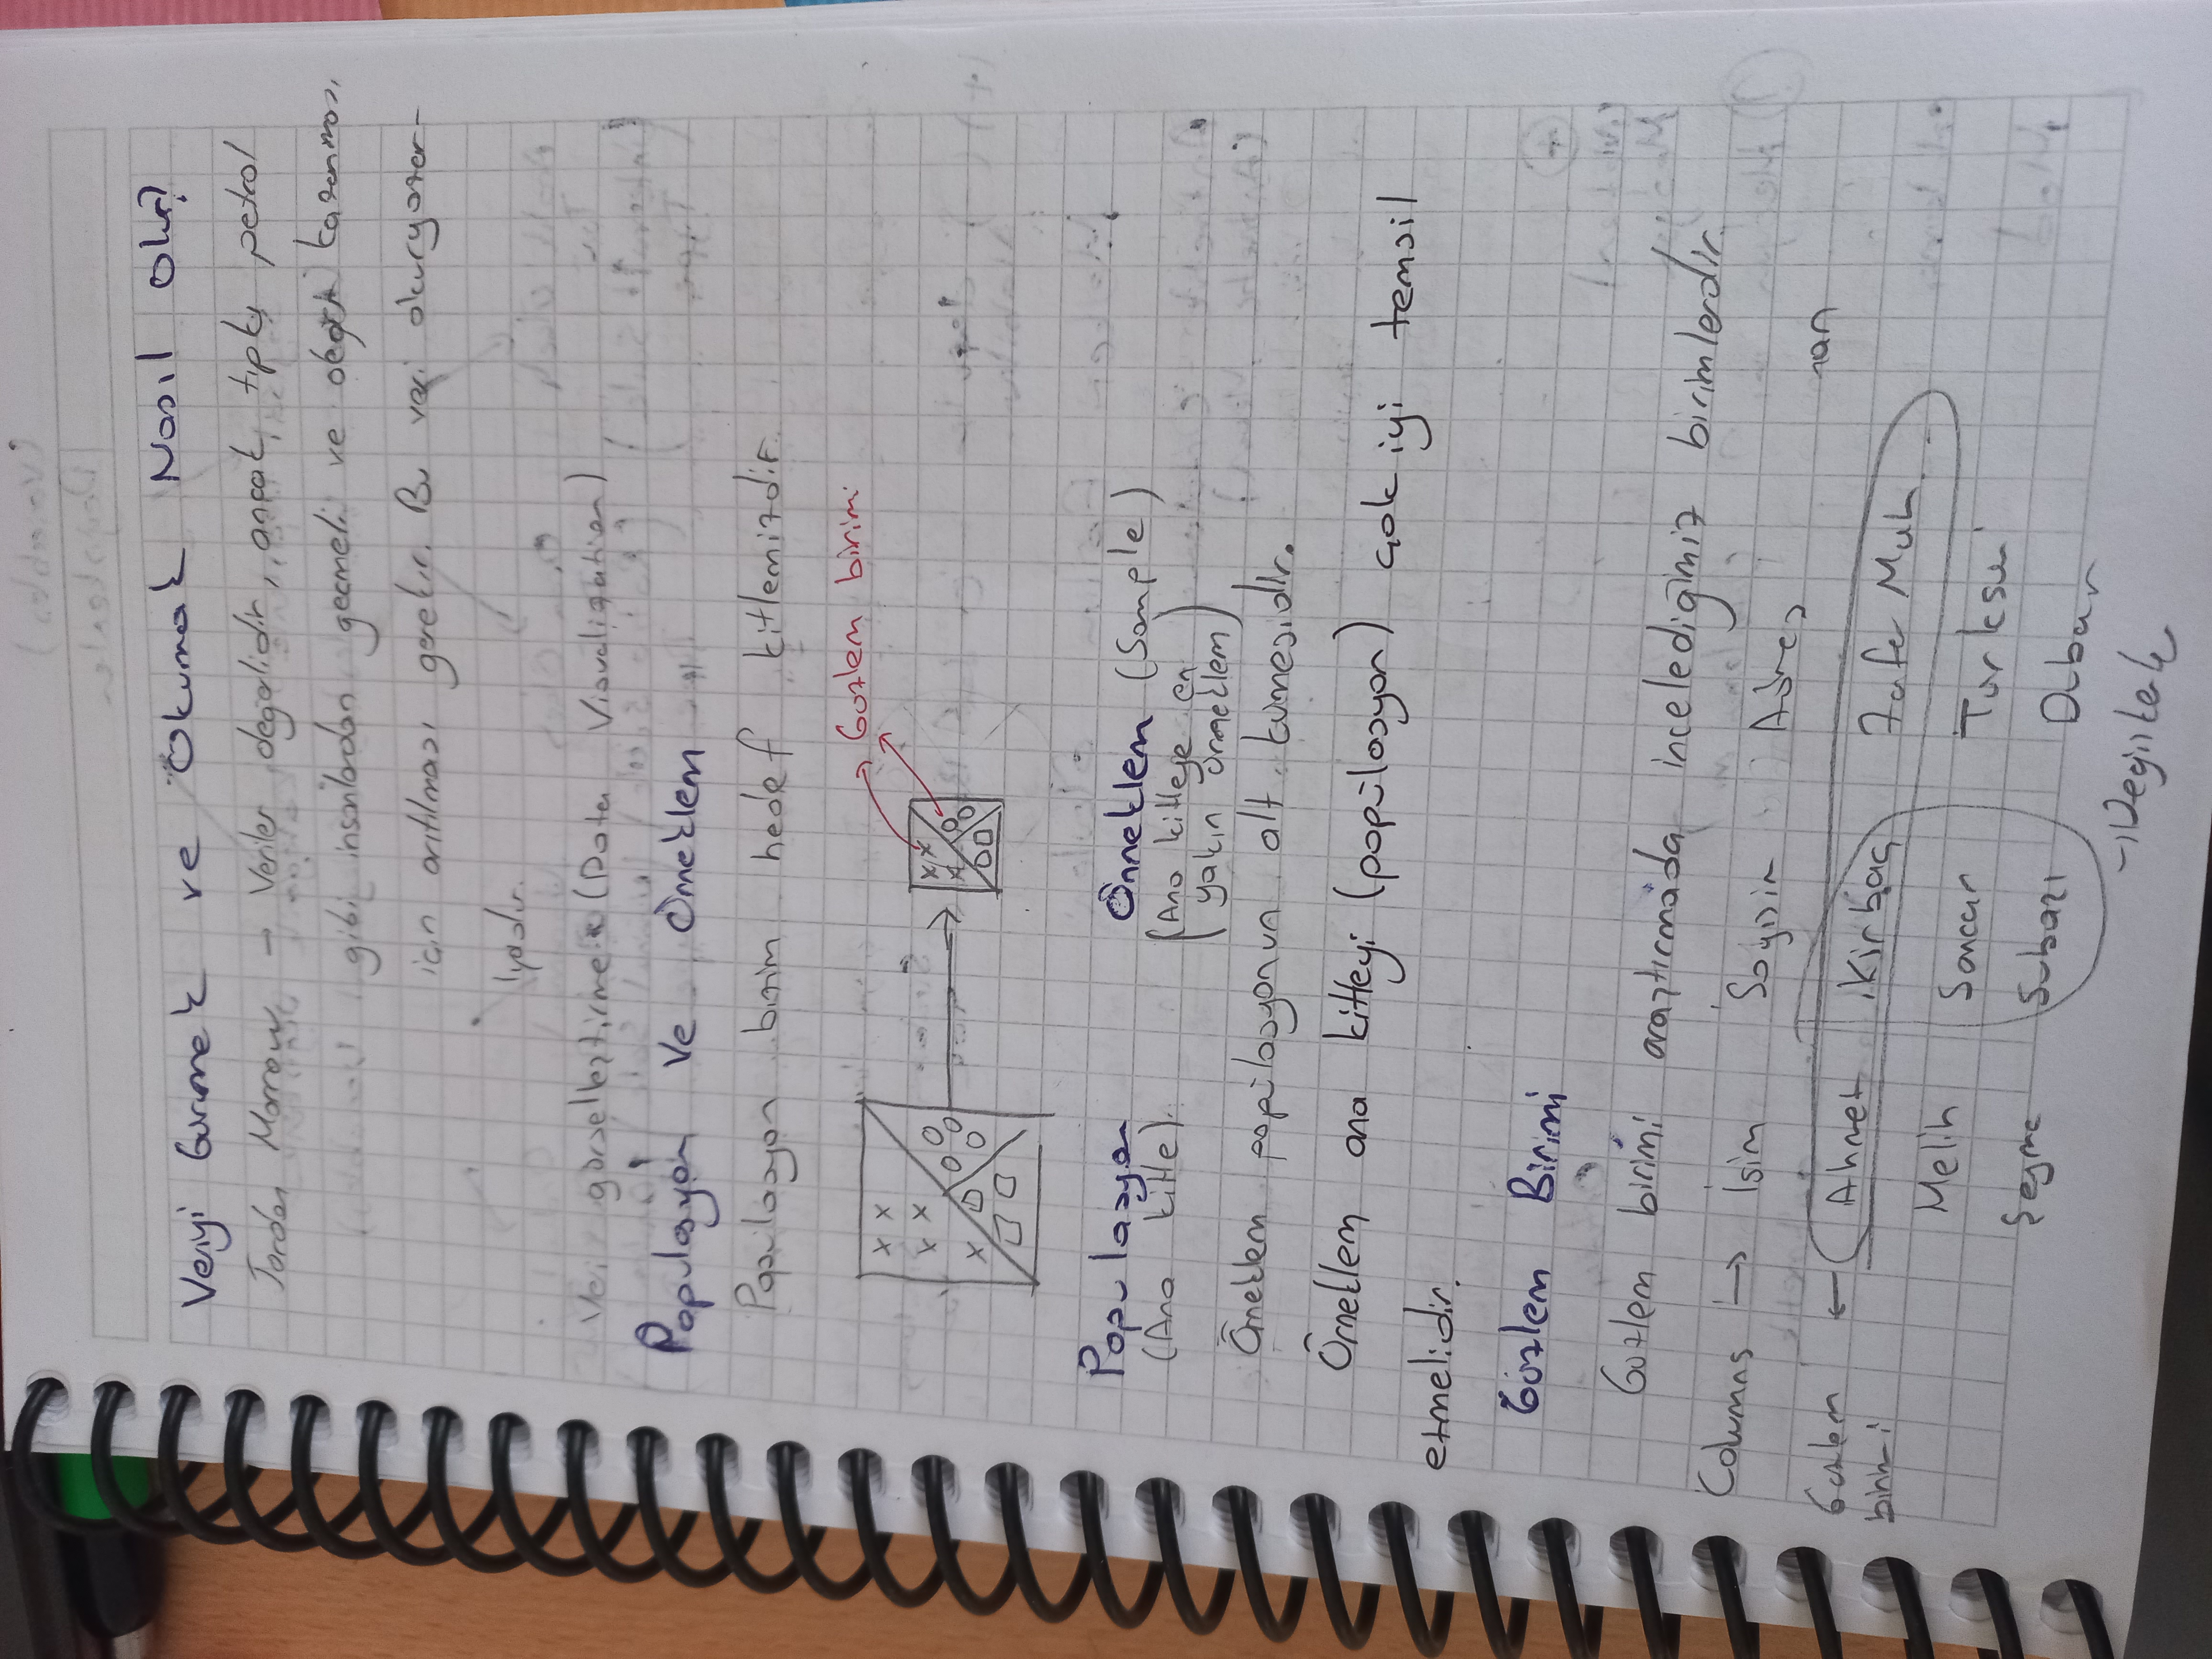 Veriyi Gurmek ve Okumak Nasıl Olur?
Jordan Morrow → Veriler değerlidir, ancak tıpkı petrol
gibi insanlardan geçmeli ve değer kazanması
için arıtılması gerekir. Bu veri okuryazar-
lığıdır.
Veri görselleştirme (Data Visualization)
Populasyon ve Örneklem
Popülasyon bizim hedef kitlemizdir.
Gözlem birimi
Populasyon Örneklem (Sample)
(Ana kitle) (Ana kitleye en
yakın örneklem)
Örneklem popülasyonun alt kümesidir.
Örneklem ana kitleyi (popülasyon) çok iyi temsil
etmelidir.
Gözlem Birimi
Gözlem birimi araştırmada incelediğimiz birimlerdir.
Columns → İsim Soyisim Adres
Gozlem ← Ahmet Kirbaç Zafer Mah
birimi
Melih Sancar Türksen
Şeyma Subaşı Dubai
→ Değişken